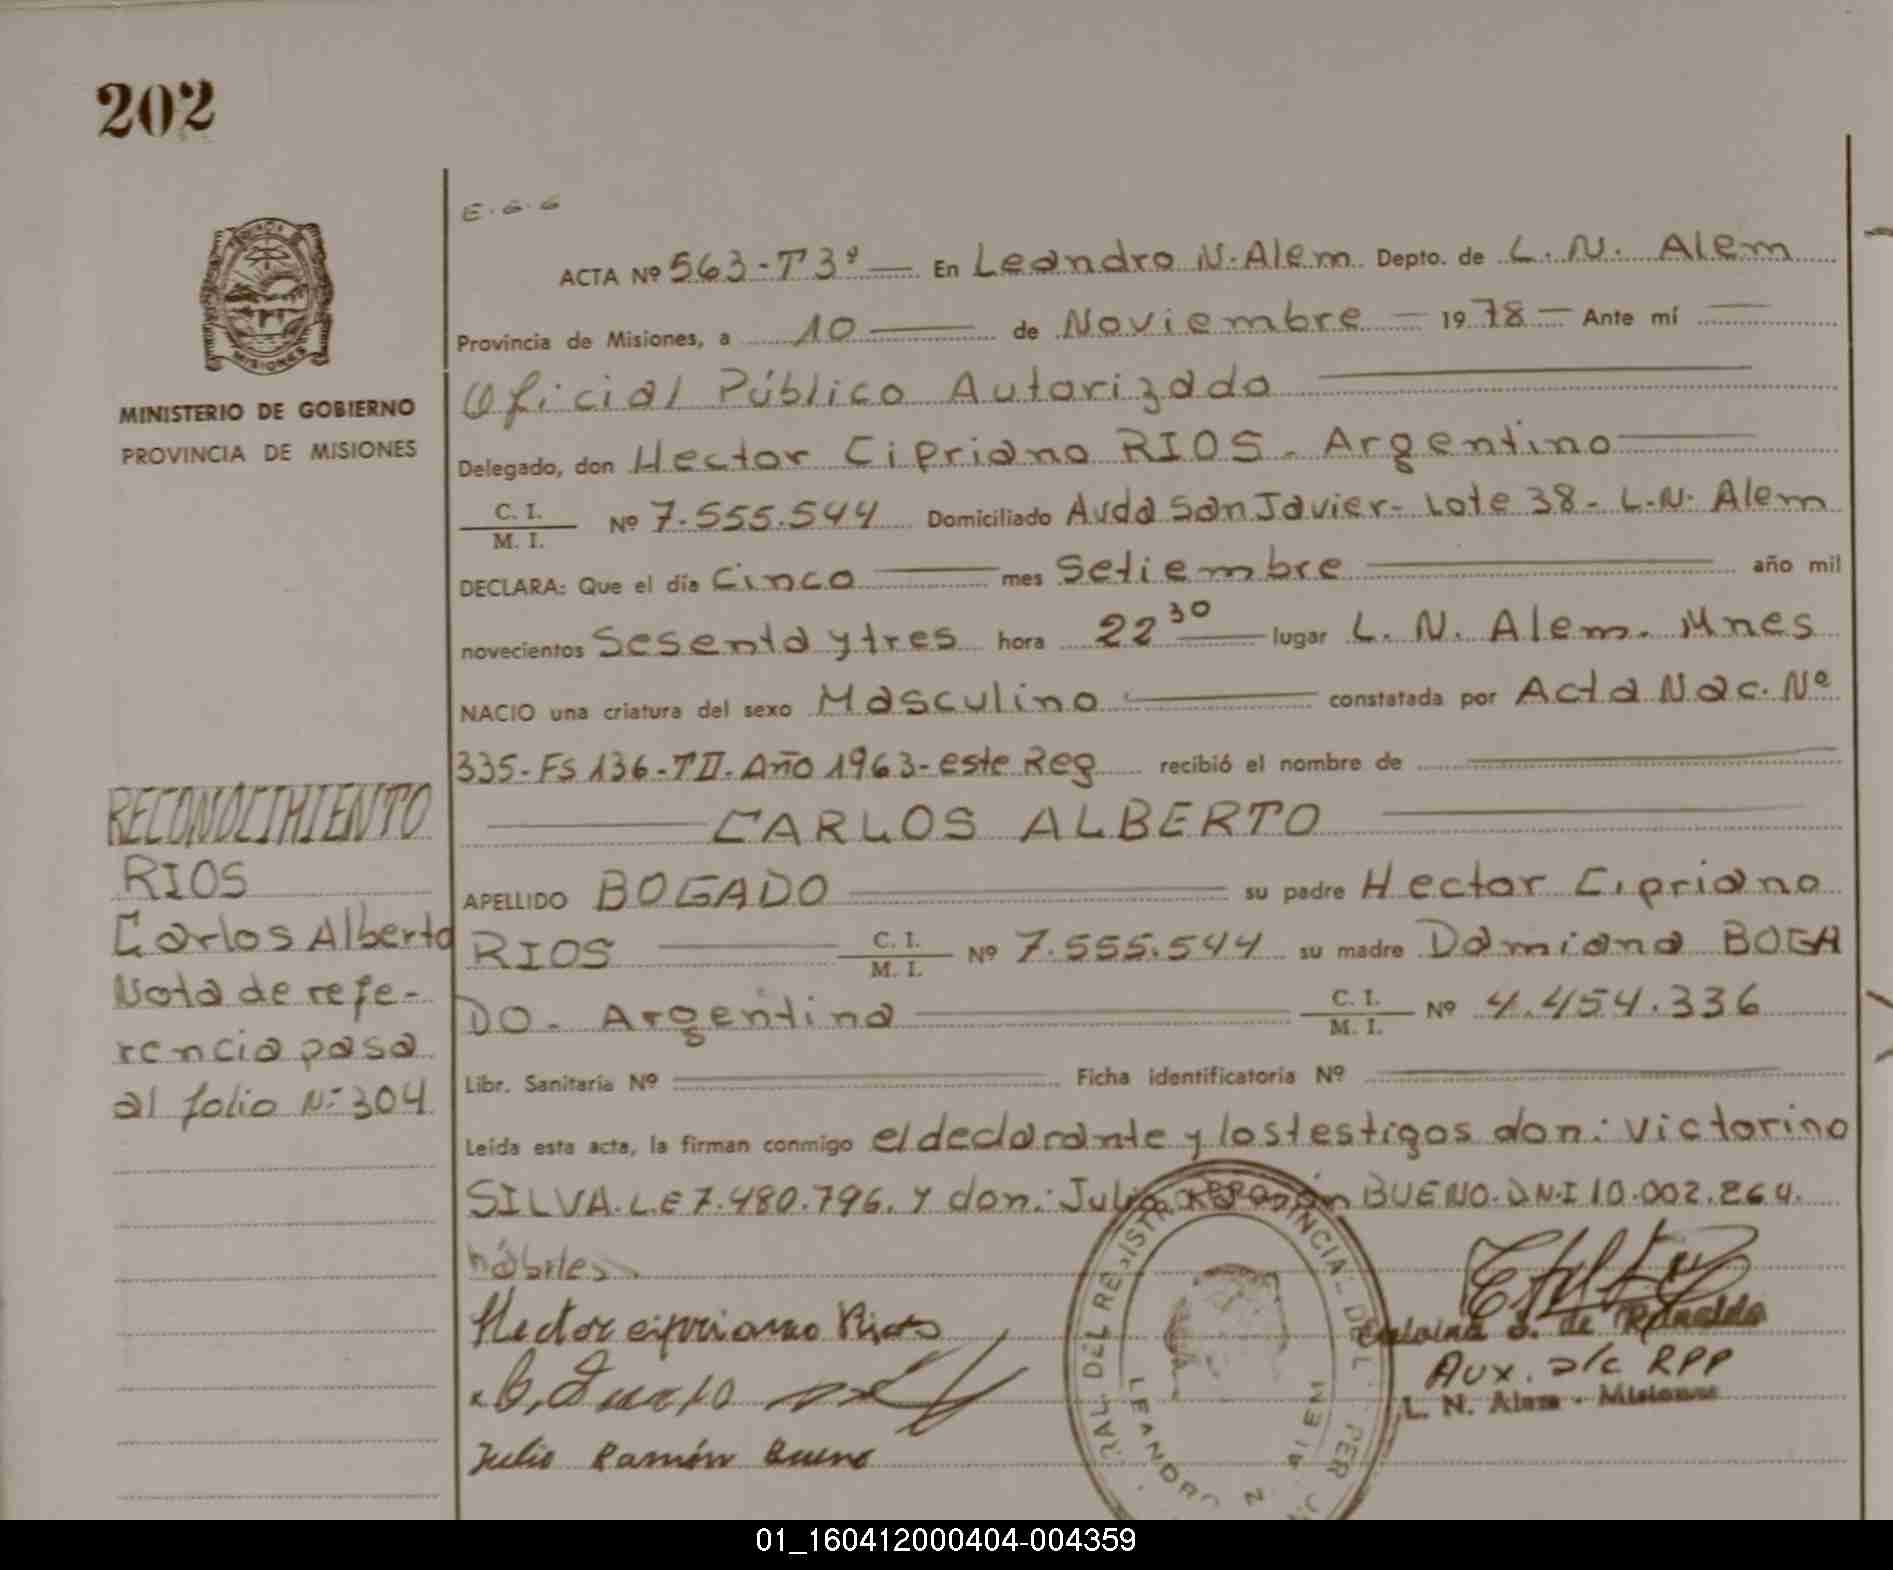 202
E.G.G
MISIONES
MINISTERIO DE GOBIERNO
PROVINCIA DE MISIONES
ACTA Nº 563-T3º — En Leandro N. Alem Depto. de L. N. Alem
Provincia de Misiones, a 10 — de Noviembre — 1978 — Ante mí —
Oficial Público Autorizado —
Delegado, don Hector Cipriano RIOS. Argentino —
C. I. / M. I. Nº 7.555.544 Domiciliado Avda San Javier- Lote 38- L.N. Alem
DECLARA: Que el día Cinco — mes Setiembre — año mil
novecientos Sesenta y tres hora 22 30 — lugar L. N. Alem. Mnes
NACIO una criatura del sexo Masculino — constatada por Acta Nac. Nº
335-Fs 136-TII. Año 1963-este Reg recibió el nombre de —
— CARLOS ALBERTO —
APELLIDO BOGADO — su padre Hector Cipriano
RIOS — C. I. / M. I. Nº 7.555.544 su madre Damiana BOGA
DO. Argentina — C. I. / M. I. Nº 4.454.336
Libr. Sanitaria Nº — Ficha identificatoria Nº —
Leída esta acta, la firman conmigo el declarante y los testigos don: Victorino
SILVA. L.E 7.480.796. y don: Julio Ramón BUENO. D.N.I 10.002.264.
hábiles
RECONOCIMIENTO
RIOS
Carlos Alberto
Nota de refe-
rencia pasa
al folio Nº 304
Hector cipriano Rios
Julio Ramón Bueno
de Reinaldo
Aux. a/c RPP
L. N. Alem - Misiones
RAL DEL REGISTR PROVINCIAL DE L PER
LEANDRO N. ALEM
01_160412000404-004359